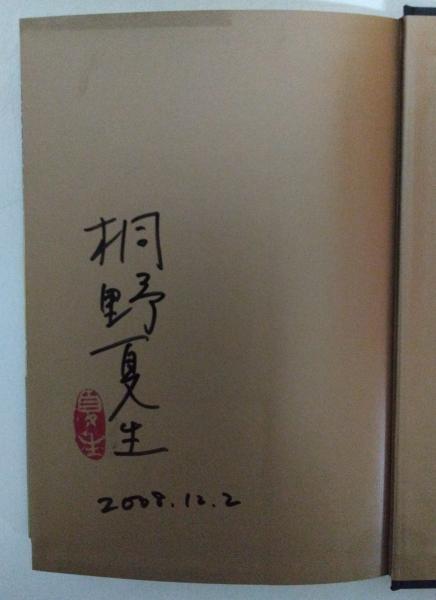 桐野夏生
夏生
2008.12.2